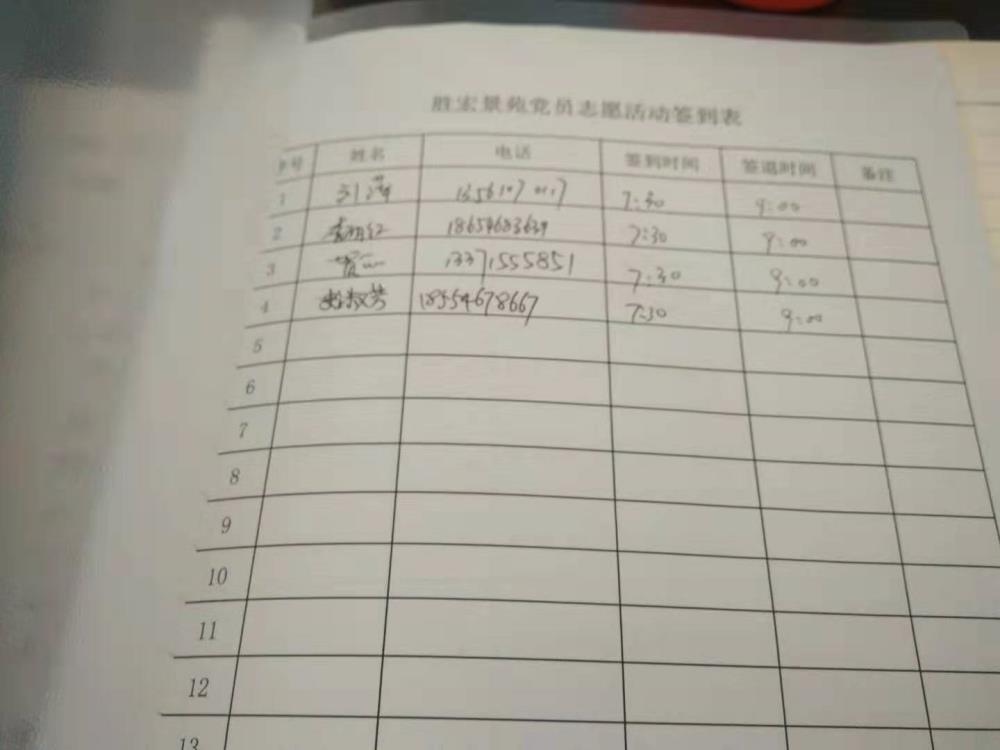 胜宏景苑党员志愿活动签到表
序号 姓名 电话 签到时间 签退时间 备注
1 7:30 9:00
2 18654683639 7:30 9:00
3 13371555851 7:30 9:00
4 18554678667 7:30 9:00
5
6
7
8
9
10
11
12
13